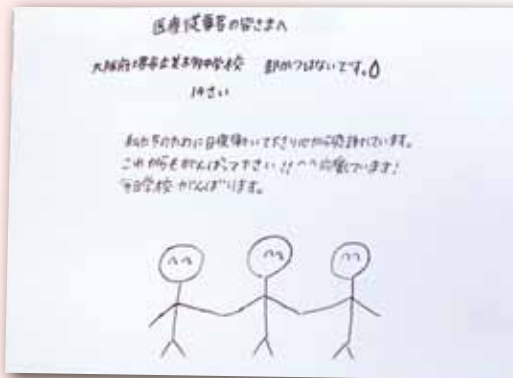 医療従事者の皆さまへ
大阪府堺市立 中学校 部かつはないです。
14さい
私たちのために日夜働いて下さり心から感謝しています。
これからもがんばって下さい!!^^応援しています!
毎日学校がんばります。